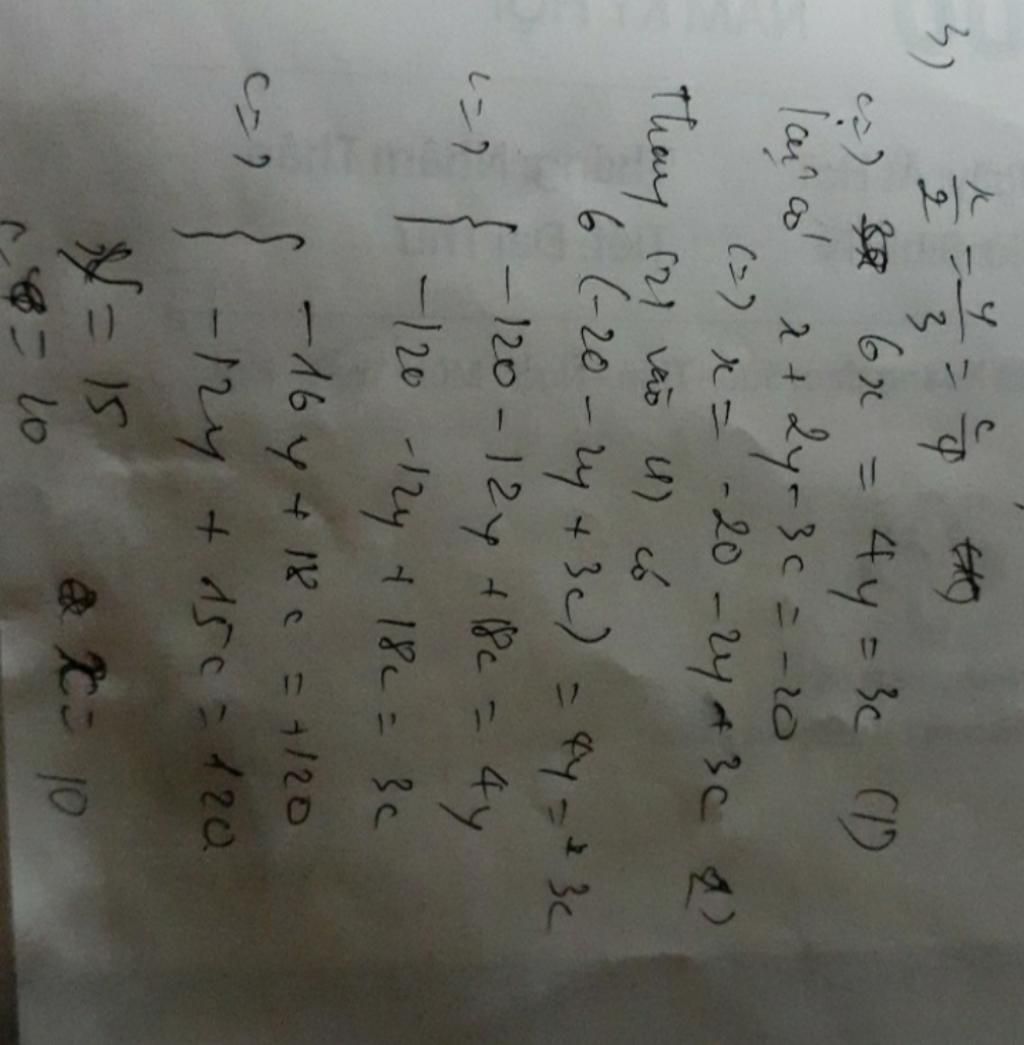 3) x/2 = y/3 = c/4
<=> 6x = 4y = 3c (1)
lại có x + 2y - 3c = -20
<=> x = -20 - 2y + 3c (2)
Thay (2) vào (1) có
6 (-20 - 2y + 3c) = 4y = 3c
<=> { -120 - 12y + 18c = 4y
-120 - 12y + 18c = 3c
<=> { -16y + 18c = +120
-12y + 15c = 120
y = 15 x = 10